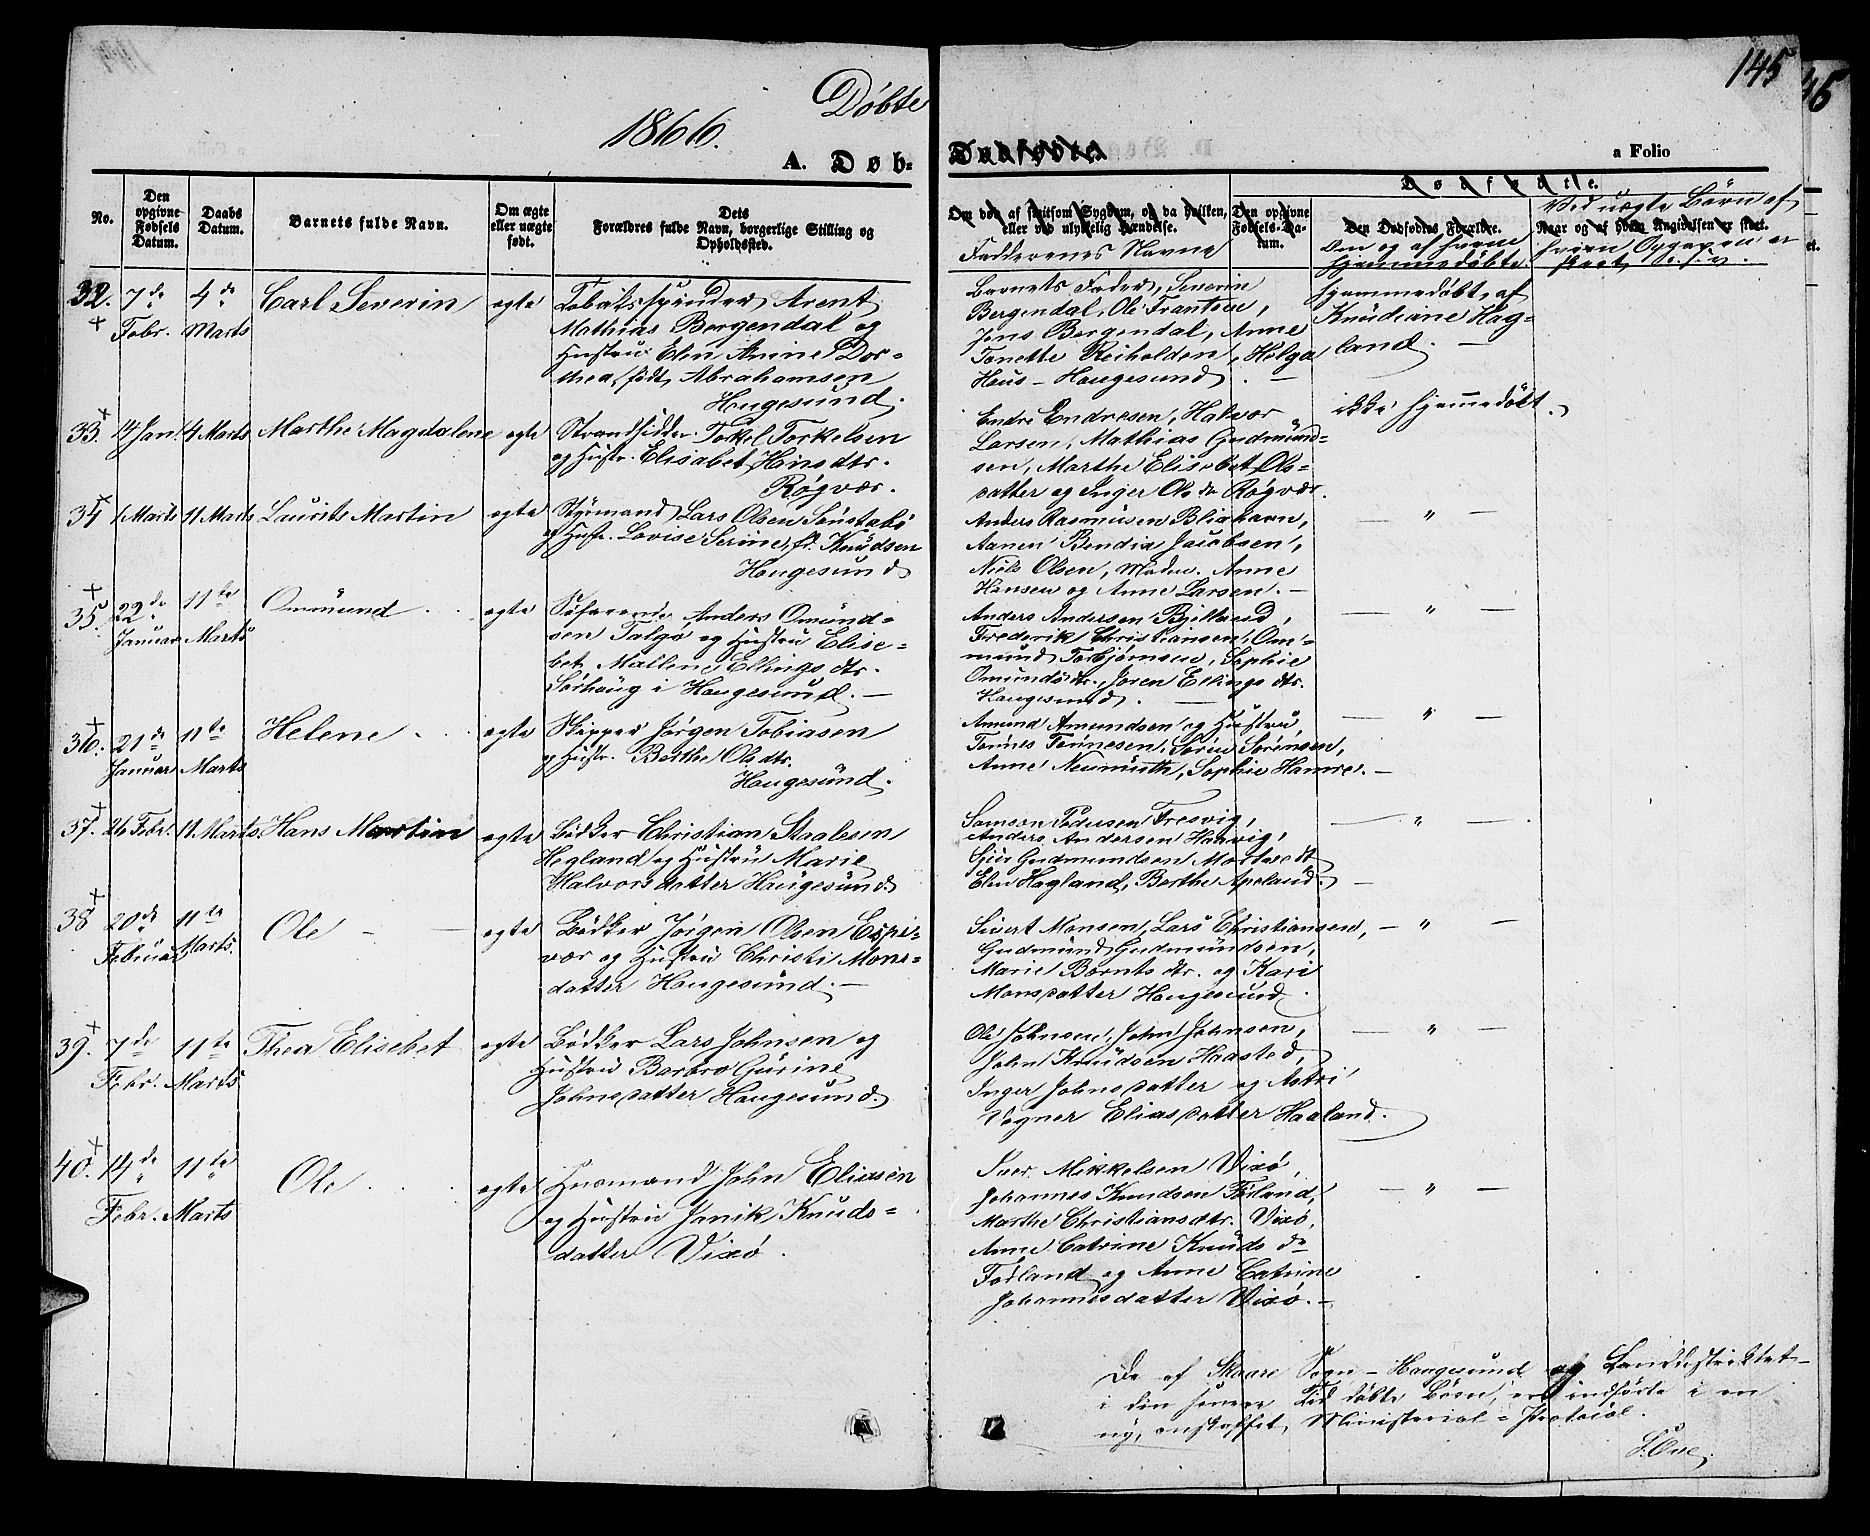 145
Døbte
1866.
A. Døb-
Dødfødte.
a Folio
No.
Den opgivne Fødsels Datum.
Daabs Datum.
Barnets fulde Navn.
Om ægte eller uægte født.
Dets Forældres fulde Navn, borgerlige Stilling og Opholdssted.
Om død af smitsom Sygdom, og da hvilken, eller ved ulykkelig Hændelse.
Faddernes Navne
Den opgivne Fødsels-Datum.
Dødfødte.
Den Dødfødtes Forældre.
Om og af hvem hjemmedøbte.
Ved uægte Børn af
Naar og af hvem Angivelsen er skeet.
hvem Opgaven er skeet o.s.v.
32. 7de Febr. 4de Marts Carl Severin egte
Tobaksspinder Arent
Mathias Bergendal og
Hustru Elen Anine Dor-
thea, født Abrahamsen
Haugesund.
Barnets Fader, Severin
Bergendal, Ole Frantsen,
Jens Bergendal, Anne
Tonette Reiholden, Helga
Haus - Haugesund. -
Hjemmedøbt af
Knudiane Hag-
land. -
33. 14 Jan. 4 Marts Marthe Magdalene egte
Strandsidder Tokel Torkelsen
og Hustr. Elisabet Hansdtr.
Røgvær.
Endre Endresen, Halvor
Larsen, Mathias Gudmund-
sen, Marthe Elisebet Ols-
datter og Inger Ols dr Røgvær.
ikke hjemmedøbt.
34 1 Marts 11 Marts Laurits Martin egte
Styrmand Lars Olsen
og Hustr. Lovise Serine, f. Knudsen
Haugesund
Anders Rasmusen
Aanen Bendix Jacobsen,
Niels Olsen, Madm. Anne
Hansen og Anne Larsen. -
— " —
35. 22de Januar 11te Marts Ommund egte
Søfarende Anders Omund-
sen Talgø og Hustru Elise-
bet Mallene Ellingsdtr.
Sørhaug i Haugesund. —
Anders Andersen
Frederik Christiansen, Om-
mund Torbjørnsen, Sophie
Omundsdtr., Joren Ellingsdtr.
Haugesund. —
— " —
36. 21de Januar 11te Marts Helene egte
Skipper Jørgen Tobiasen
og Hustr. Berthe Olsdtr.
Haugesund.
Amund Amundsen og Hustru,
Tønnes Tønnesen, Søren Sørensen,
Anne Neumuth, Sophie Hamre. -
— " —
37. 26 Febr. 11 Marts. Hans Martin egte
Bødker Christian Staalesen
Hegland og Hustru Marie
Halvorsdatter Haugesund
Samson Pedersen Fresvig,
Anders Andersen
Gudmundsen
Elen Hagland, Berthe Apeland. -
— " —
38 20de Februar 11te Marts. Ole - — egte
Bødker Jørgen Olsen Espe-
vær og Hustru Christi Mons-
datter Haugesund. —
Sivert Monsen, Lars Christiansen,
Gudmund Gudmundsen,
Marie Berntsdtr. og Kari
Monsdatter Haugesund.
— " —
39. 7de Febr. 11te Marts Thea Elisebet egte
Bødker Lars Johnsen og
Hustru Barbro Gurine
Johnsdatter Haugesund.
Ole Johnsen, John Johnsen,
John Knudsen Haasted,
Inger Johnsdatter og Astri
Vegner Eliasdatter Haaland.
— " —
40. 14de Febr. 11te Marts Ole egte
Husmand John Eliasen
og Hustru Janik Knuds-
datter Vixø.
Iver Mikkelsen Vixø,
Johannes Knudsen Førland,
Marthe Christiansdtr. Vixø,
Anne Catrine Knuds dr
Førland og Anne Catrine
Johannesdatter Vixø. -
— " —
De af Skaare Sogn - Haugesund og Landdistriktet -
i den senere Tid døbte Børn, ere indførte i en
ny, anskaffet, Ministerial-Protocol.